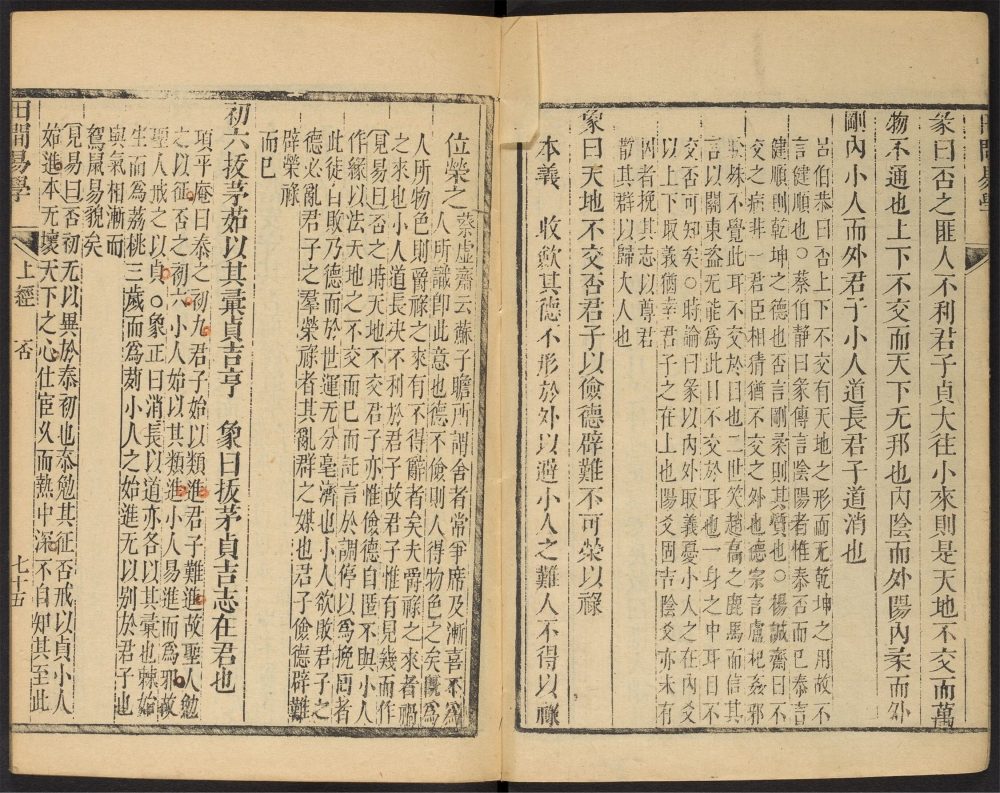 彖曰否之匪人不利君子貞大往小來則是天地不交而萬
物不通也上下不交而天下无邦也內陰而外陽內柔而外
剛內小人而外君子小人道長君子道消也
呂伯恭曰否上下不交有天地之形而无乾坤之用故不
言健順也○蔡伯靜曰彖傳言陰陽者惟泰否而已泰言
健順則乾坤之德也否言剛柔則其質也○楊誠齋曰不
交之病非一君臣相猜猶不交之外也德宗言盧杞姦邪
殊不覺此耳不交於目也二世笑趙高之鹿馬而信其
言以關東盜无能爲此目不交於耳也一身之中耳目不
交否可知矣○時論曰彖以內外取義憂小人之在內爻
以上下取義猶幸君子之在上也陽爻固吉陰爻亦未有
凶者挽其志以尊君
散其群以歸大人也
象曰天地不交否君子以儉德辟難不可榮以祿
本義 收斂其德不形於外以避小人之難人不得以祿
位榮之
蔡虛齋云蘇子瞻所謂舍者常爭席及漸喜不爲
人所識卽此意也德不儉則人得物色之矣旣爲
人所物色則爵祿之來有不得辭者矣夫爵祿之來者禍
之來也小人道長決不利於君子故君子惟有見幾而作
見易曰否之時天地不交君子亦惟儉德自匿不與小人
作緣以法天地之不交而已而託言於調停以爲挽囘者
此徒白敗乃德而於世運无分毫濟也小人欲敗君子之
德必亂君子之羣榮祿者其亂群之媒也君子儉德辟難
辟榮祿
而已
初六拔茅茹以其彙貞吉亨 象曰拔茅貞吉志在君也
項平庵曰泰之初九君子始以類進君子難進故聖人勉
之以征否之初六小人始以其類進小人易進而爲邪故
聖人戒之以貞○象正曰消長以道亦各以其彙也棘始
生而爲荔桃三歲而爲蒭小人之始進无以别於君子也
與氣相漸而
鴛鼠易貌矣
見易曰否初无以異於泰初也泰勉其征否戒以貞小人
始進本无壞天下之心仕宦久而熱中深不自知其至此
田間易學 上經 否 七十五